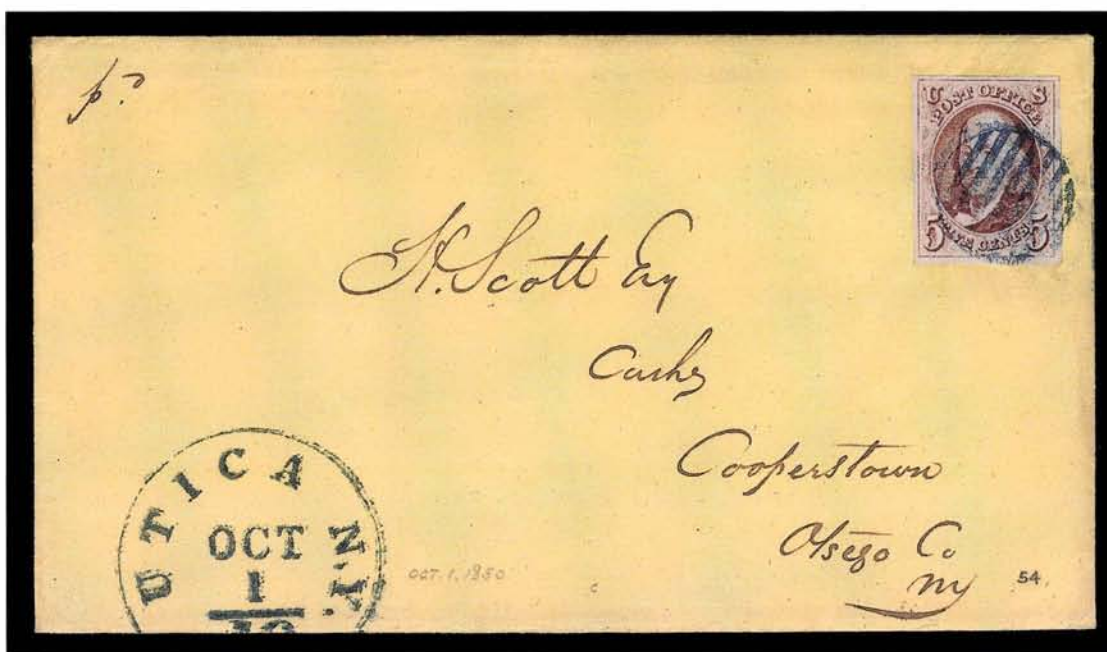 pd
U S
POST OFFICE
FIVE CENTS
5 5
H. Scott Esq
Cashr
Cooperstown
Otsego Co
NY
UTICA N.Y.
OCT
1
10
OCT. 1, 1850
c
54.